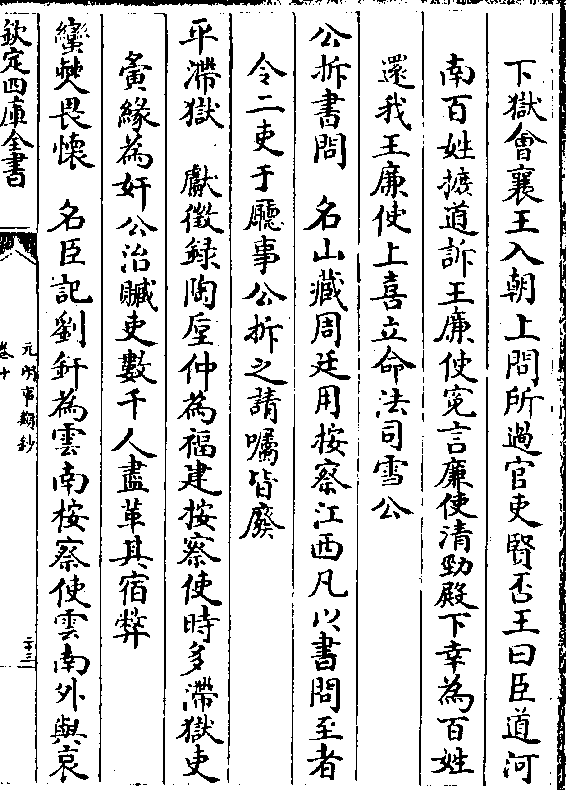 下獄會襄王入朝上問所過官吏賢否王曰臣道河
南百姓摭道訴王廉使寃言廉使清勁殿下幸為百姓
還我王廉使上喜立命法司雪公
公拆書問　名山藏周廷用按察江西凡以書問至者
令二吏于廳事公拆之請囑皆廢
平滯獄　獻徵録陶垕仲為福建按察使時多滯獄吏
夤緣為奸公治贓吏數千人盡革其宿弊
蠻僰畏懷　名臣記劉釬為雲南按察使雲南外與哀
欽定四庫全書
元明事類鈔
卷十
二三